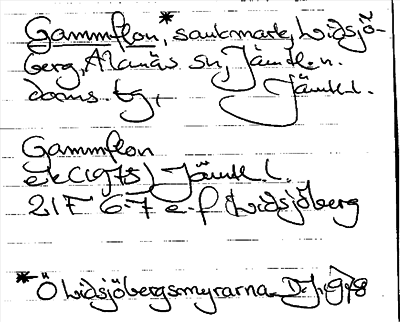 Gammflon*, sankmark, Lidsjö-
berg, Alanäs sn, Jämtl.n.
doms. tg, Jämtl.l.
Gammflon
ek (1975) Jämtl l.
21F 6-7 e-f Lidsjöberg
*Ö Lidsjöbergsmyrarna D.J. 1978